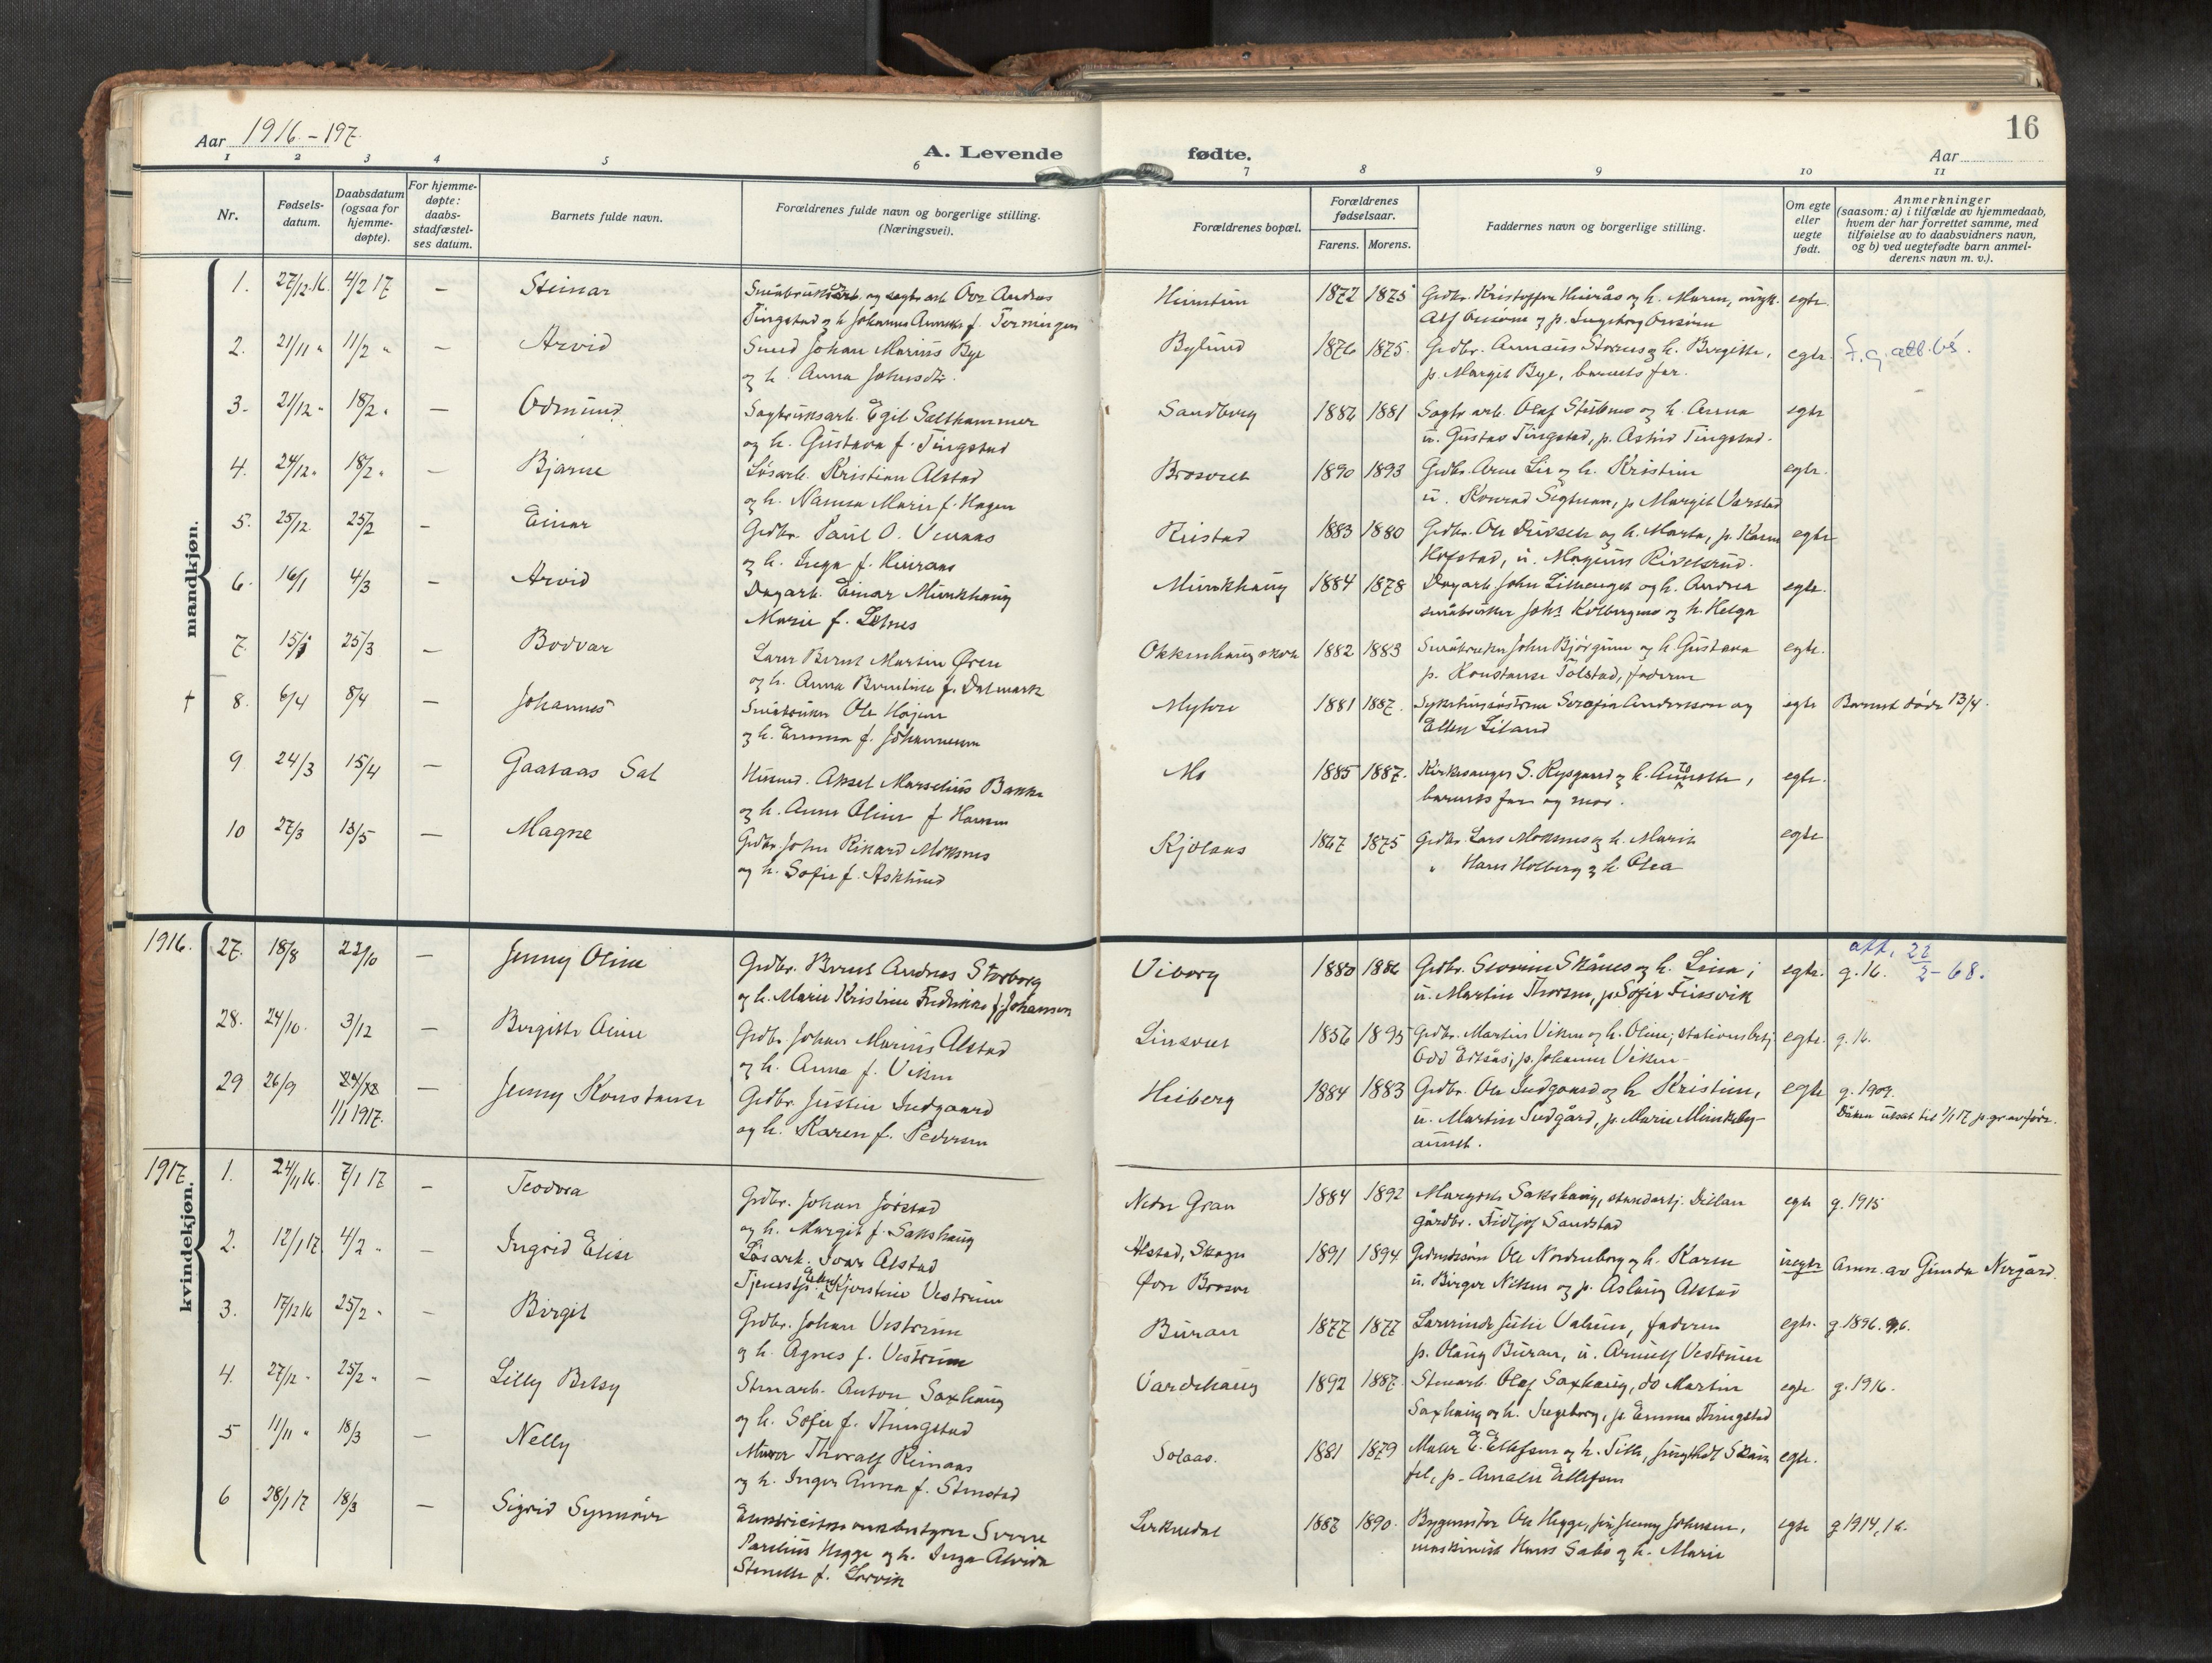 16
Aar 1916 - 197.
A. Levende fødte.
Aar
1 2 3 4 5 6 7 8 9 10 11
Nr.
Fødsels-
datum.
Daabsdatum
(ogsaa for
hjemme-
døpte).
For hjemme-
døpte:
daabs-
stadfæstel-
ses datum.
Barnets fulde navn.
Forældrenes fulde navn og borgerlige stilling.
(Næringsvei).
Forældrenes bopæl.
Forældrenes
fødselsaar.
Farens. Morens.
Faddernes navn og borgerlige stilling.
Om egte
eller
uegte
født.
Anmerkninger
(saasom: a) i tilfælde av hjemmedaab,
hvem der har forrettet samme, med
tilføielse av to daabsvidners navn,
og b) ved uegtefødte barn anmel-
derens navn m. v.).
mandkjøn.
1. 27/12.16. 4/2 17 — Steinar
Tingstad og h. Johanna
1872 1875 Grdbr. Kristoffer og h. Maren, egte.
2. 21/11 " 11/2 " — Arvid Smed Johan Marius Bye Bylund 1876 1875. Grdbr. og h. Birgitte, egte.
og h. Anna Johnsdtr. p. Margit Bye, barnets far.
3. 21/12 " 18/2 " — Odmund Sagbruksarb. Egil Salthammer Sandborg 1886 1881 Sagbr. arb. Olaf og h. Anna egte
og h. Gustava f. Tingstad u. Gustav Tingstad, p. Astrid Tingstad.
4. 24/12 " 18/2 " — Bjarne Løsarb. Kristian Alstad 1890 1893 Grdbr. Arne Lie og h. Kristine egte.
og h. Nanna Marie f. Hagen u. Konrad Sigtman, p Margit Varstad
5. 25/12 25/2 — Einar Grdbr. Paul O. Venaas Ristad 1883 1880 Grdbr. Ole og h. Marta, p. Karen egte
og h. Inga f. Hofstad, u. Magnus
6. 16/1 4/3 — Arvid Dagarb. Einar Munkhaug Munkhaug 1884 1878 Dagarb. John og h. Andrea egte.
Marie f. Letnes småbruker Johs Kolbergmo og h. Helga
7. 25/3 — Bodvar Lærer Bernt Martin Øren Okkenhaug skole 1882 1883 Småbruker John og h. Gustava egte.
og h. Anna Berntine f. Dalmark p. Konstanse Tolstad, faderen
† 8. 6/4 8/4 — Johannes Småbruker Ole Hojem Myhre 1881 1887. Sykehussøstrene Serafia Andersson og egte Barnet døde 13/4.
og h. Emma f. Johannesen Ellen Liland
9 24/3 15/4 — Gaataas Sal Husmd. Aksel Marselius Bakke Mo 1885 1887. Kirkesanger S. Rygaard og h. egte.
og h. Anna Oline f Hansen barnets far og mor.
10 27/3 13/5 — Magne Grdbr. John Rikard Moksnes Kjølaas 1867 1875 Grdbr. Lars Moksnes og h. Marit egte
og h. Sofie f. Asklund " Hans Holberg og h. Olea
kvindekjøn.
1916. 27. 18/8 22/10 — Jenny Oline Grdbr. Bernt Andreas Storborg Viborg 1880 1886 Grdbr. Severin Skånes og h. Lina; egte. g. 16. att. 22/2 - 68.
og h. Marie Kristine Fredrikke f. Johansen u. Martin Thorsen, p. Sofie Finsvik
28. 24/10. 3/12 — Birgitte Oline Grdbr. Johan Marius Alstad 1895 Grdbr. Martin Viken og h. Oline; stationsbetj. egte. g. 16.
og h. Anna f. Viken Odd p. Johanna Viken
29 26/9 24/12 — Jenny Konstanse Grdbr. Justin Indgaard Heiberg 1884 1883 Grdbr. Ole Indgaard og h Kristine, egte g. 1909.
1/1 1917. og h. Karen f. Pedersen u. Martin Indgård, p. Marie Munkeby- Dåben utsat til 1/1 17 p. gr. av føre.
aunet.
1917 1. 24/11 16. 7/1 17 — Teodora Grdbr. Johan Jørstad Nedre Gran 1884 1892 Margrete Sakshaug, egte g. 1915
og h. Margit f. Sakshaug gårdbr. Fidtjof Sandstad
2. 12/1 17 4/2 " — Ingrid Elise Løsarb. Ivar Alstad Alstad, Skogn 1891 1894 Ole Nordenborg og h. Karen uegte Anm. av Gunda Nergård.
Kjerstine Vestrum Øvre u. Birger Nilsen og p. Aslaug Alstad
3. 17/12 16 25/2 " — Birgit Grdbr. Johan Vestrum Buran 1877 1877 Lærerinde Julie Valum, faderen egte. g. 1896.
og h. Agnes f. Vestrum p. Olaug Buran, u. Arnulf Vestrum
4. 27/12 " 25/2 " — Lilly Betsy Stenarb. Anton Saxhaug Vardehaug 1892 1887. Stenarb. Olaf Saxhaug, do Martin egte g. 1916.
og h. Sofie f. Thingstad Saxhaug og h. Ingeborg, p. Emma Thingstad
5 11/11 " 18/3 — Nelly Murer Thoralf Reinaas Solaas. 1881 1879 Maler E. Ellefsen og h. egte.
og h. Inger Anna f. Stenstad p. Amalie Ellefsen
6 28/1 17 18/3 — Sigrid Synnøve Elektricitetsverksbestyrer Sverre 1887 1890. Bygmester Ole Hegge, Jenny Johnsen, egte g 1914, 16.
Paulius Hegge og h. Inga Alvida maskinist Hans Saks og h. Marie
Stenette f. Lorvik